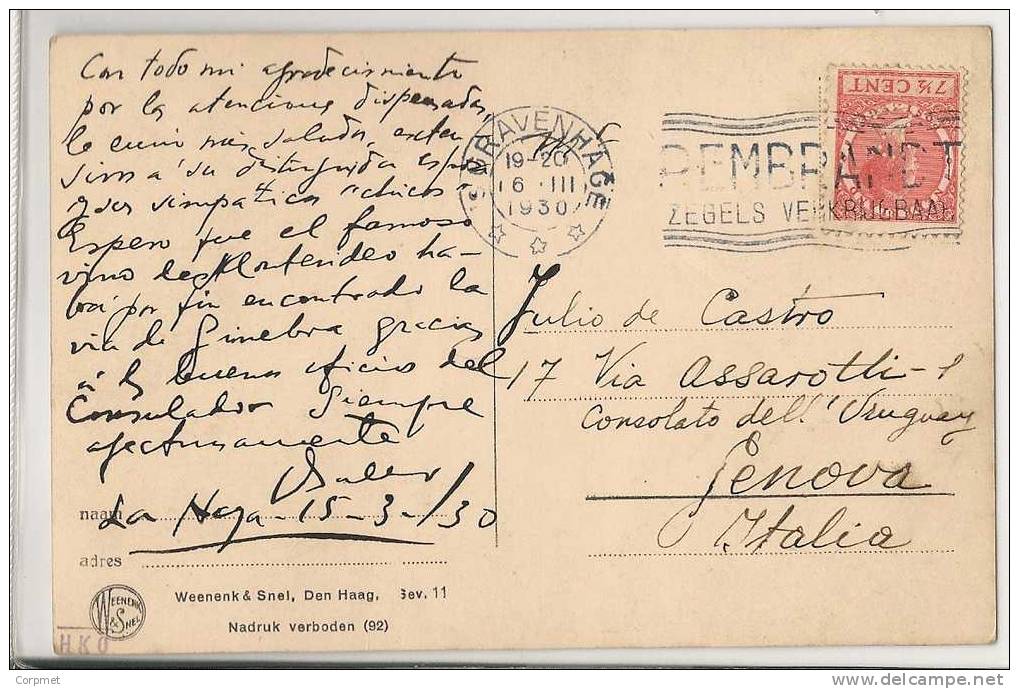 Con todo mi agradecimiento
por las atenciones dispensadas,
le envio mis saludos, exten
sivos a su distinguida esposa
y sus simpaticos "chicos"
Espero que el famoso
vino de Montevideo ha-
brá por fin encontrado la
via de Ginebra gracias
á los buenos oficios del
Consulador Siempre
afectuosamente
La Haya - 15-3-/30
naam
adres
Weenenk & Snel, Den Haag, Gev. 11
Nadruk verboden (92)
WEENENK & SNEL
HKO
'S GRAVENHAGE
19-20
16 III
1930
REMBRANDT
ZEGELS VERKRIJGBAAR
7½ CENT
Julio de Castro
17 Via Assarotti - 1
Consolato dell' Uruguay
Genova
Italia
Copyright : delcampe.net